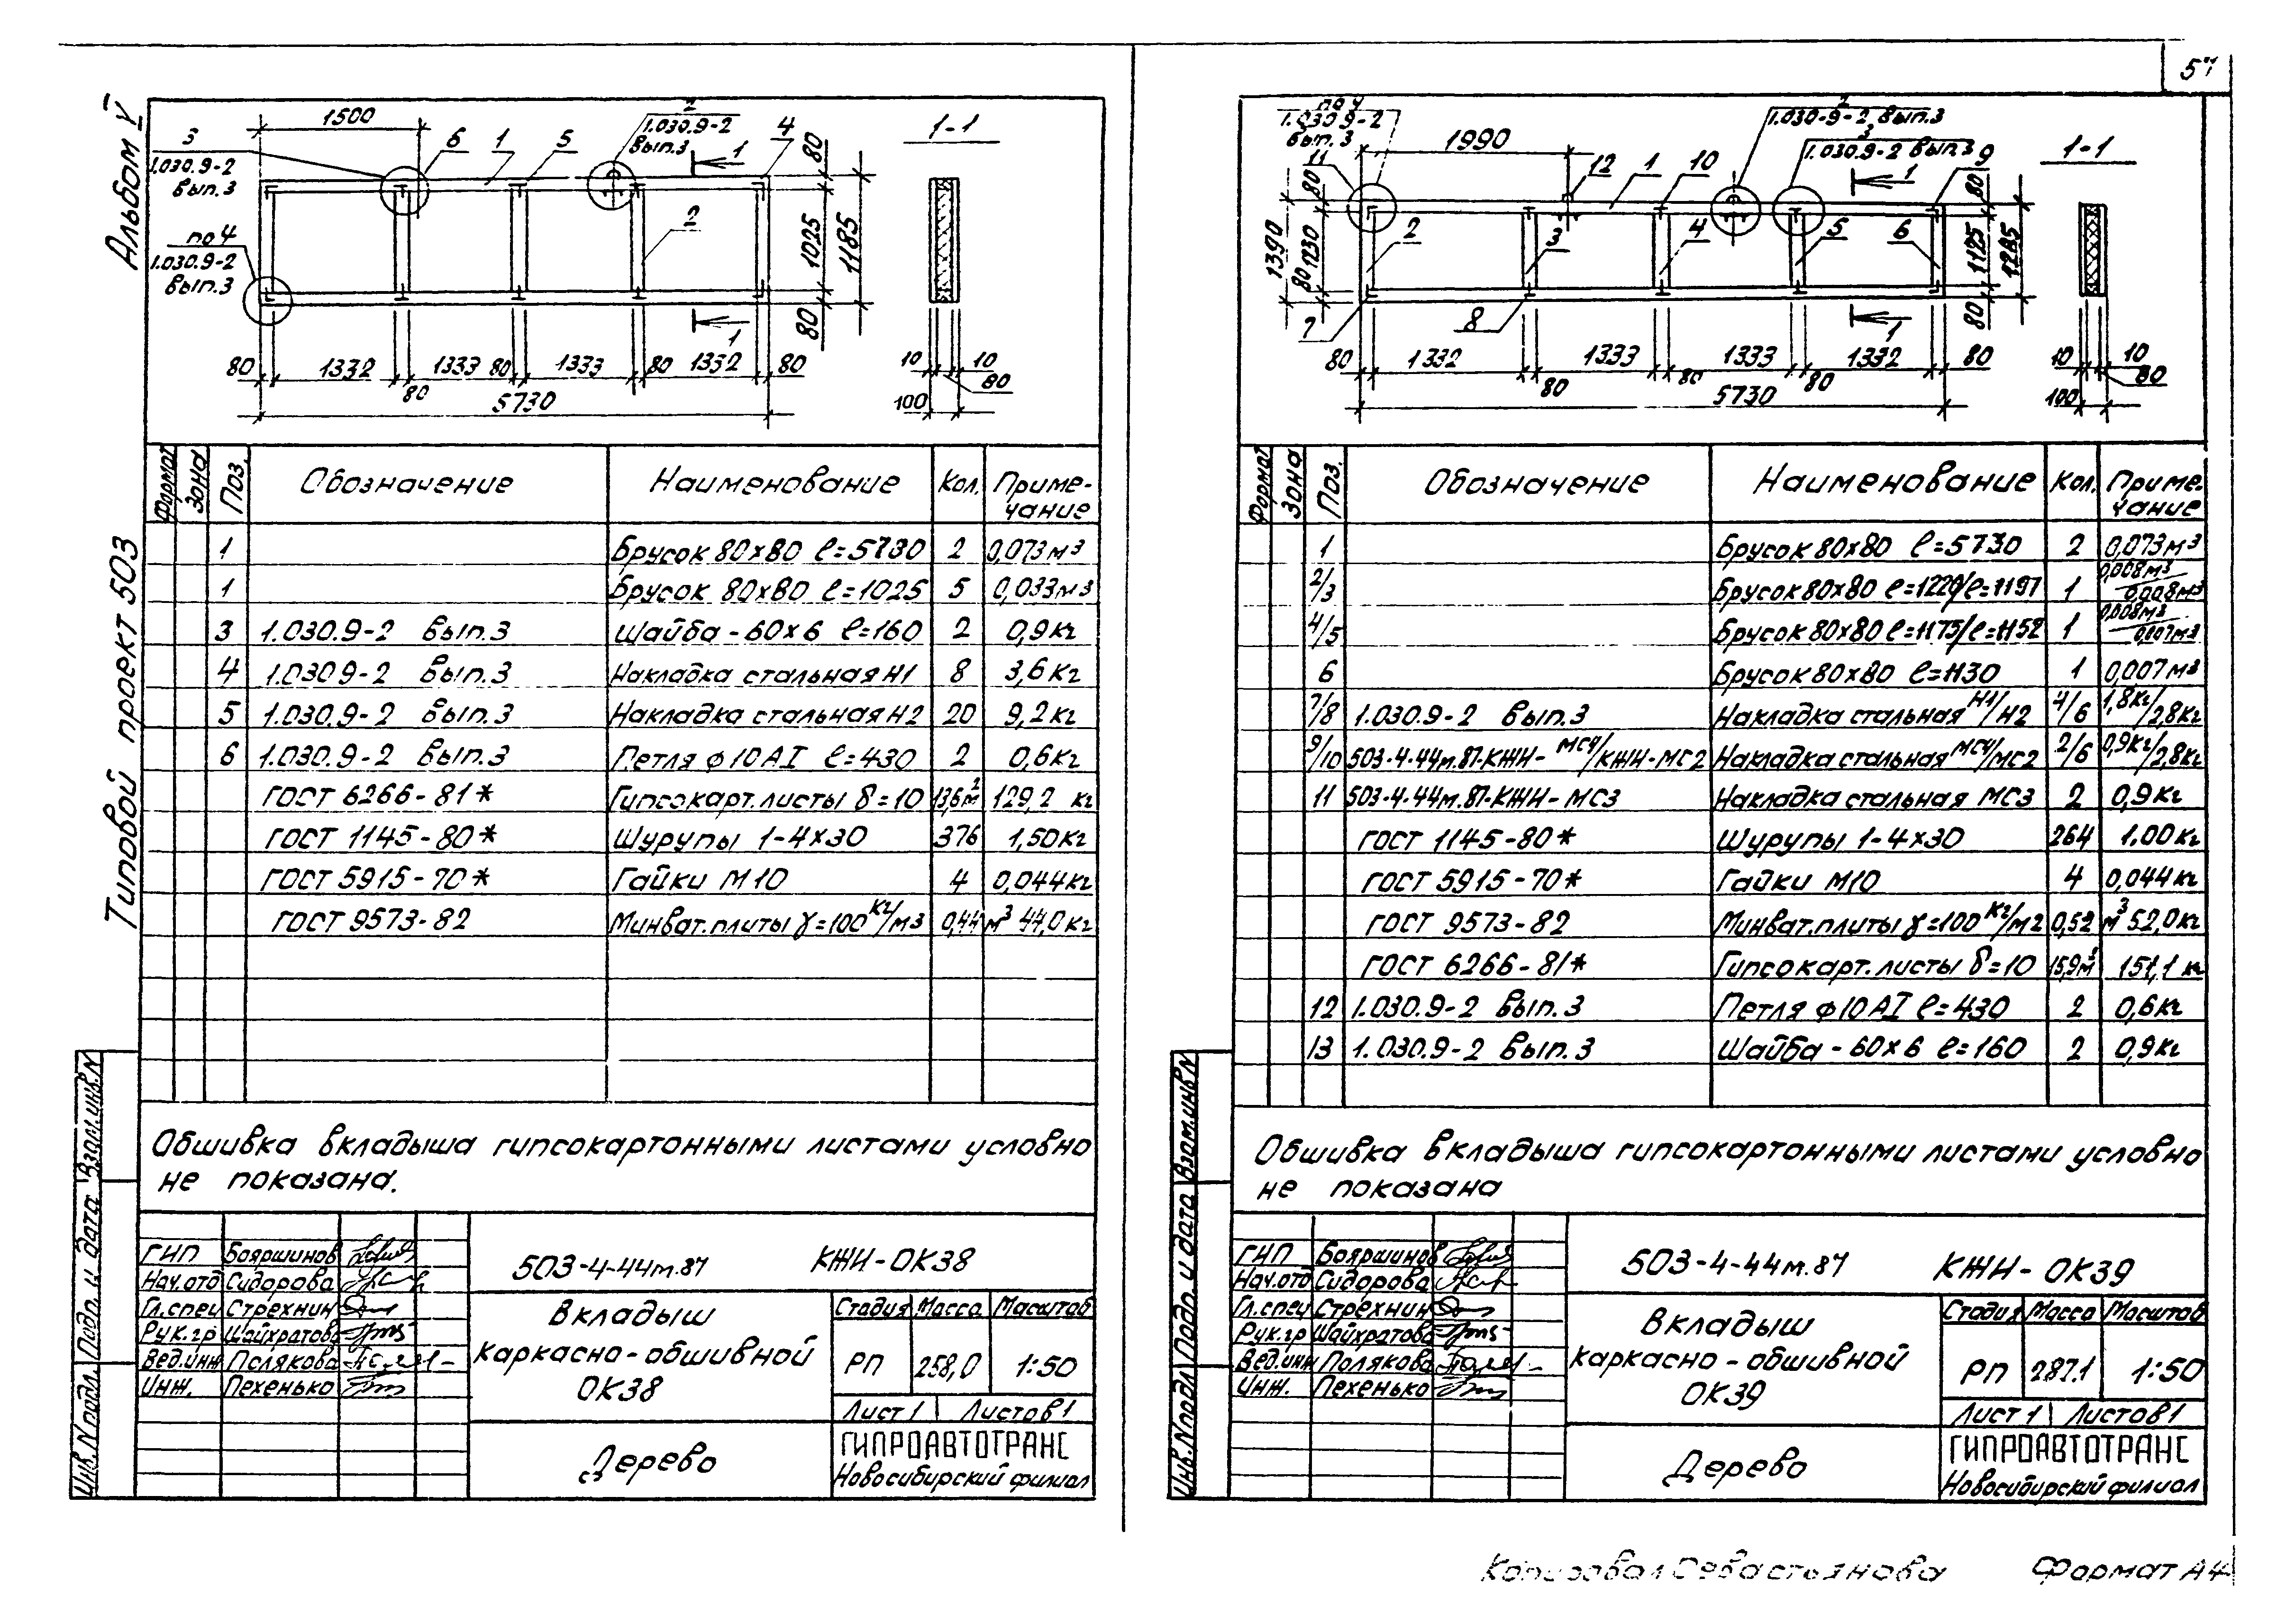 57
Альбом V
Типовой проект 503
1500
3
1.030.9-2
вып.3
6
1
5
2
1.030.9-2
вып.3
1
4
1-1
80
1025
1185
80
по 4
1.030.9-2
вып.3
2
1
80 1332 80 1333 80 1333 80 1332 80
5730
10 10
80
100
Формат Зона Поз. Обозначение Наименование Кол. Приме-
чание
1 Брусок 80х80 ℓ=5730 2 0,073м3
1 Брусок 80х80 ℓ=1025 5 0,033м3
3 1.030.9-2 вып.3 Шайба-60х6 ℓ=160 2 0,9кг
4 1.030.9-2 вып.3 Накладка стальная Н1 8 3,6кг
5 1.030.9-2 вып.3 Накладка стальная Н2 20 9,2кг
6 1.030.9-2 вып.3 Петля ф10АI ℓ=430 2 0,6кг
ГОСТ 6266-81* Гипсокарт.листы δ=10 13,6м2 129,2 кг
ГОСТ 1145-80* Шурупы 1-4х30 376 1,50кг
ГОСТ 5915-70* Гайки М10 4 0,044кг
ГОСТ 9573-82 Минват.плиты γ=100 кг/м3 0,44 м3 44,0кг
Обшивка вкладыша гипсокартонными листами условно
не показана.
Взам.инв.N
Подп. и дата
Инв.N подл.
ГИП Бояршинов
Нач.отд Сидорова
Гл.спец Стрехнин
Рук.гр Шайхратова
Вед.инж Полякова
Инж. Пехенько
503-4-44м.87 КЖИ-ОК38
Вкладыш
каркасно-обшивной
ОК38
Стадия Масса Масштаб
РП 258,0 1:50
Лист 1 Листов 1
Дерево
ГИПРОАВТОТРАНС
Новосибирский филиал
по 4
1.030.9-2
вып.3
11
1990
12
1
10
2
1.030-9-2 вып.3
3
1.030.9-2 вып.3
9
1
1-1
80
1230
1390
80
2
3
4
5
6
7
8
80
1125
1285
80
1
80 1332 80 1333 80 1333 80 1332 80
5730
10 10
80
100
Формат Зона Поз. Обозначение Наименование Кол. Приме-
чание
1 Брусок 80х80 ℓ=5730 2 0,073м3
2/3 Брусок 80х80 ℓ=1220/ℓ=1197 1 0,008м3/0,008м3
4/5 Брусок 80х80 ℓ=1175/ℓ=1152 1 0,008м3/0,007м3
6 Брусок 80х80 ℓ=1130 1 0,007м3
7/8 1.030.9-2 вып.3 Накладка стальная Н1/Н2 4/6 1,8кг/2,8кг
9/10 503-4-44м.87-КЖИ-МС4/КЖИ-МС2 Накладка стальная МС4/МС2 2/6 0,9кг/2,8кг
11 503-4-44м.87-КЖИ-МС3 Накладка стальная МС3 2 0,9кг
ГОСТ 1145-80* Шурупы 1-4х30 264 1.00кг
ГОСТ 5915-70* Гайки М10 4 0,044кг
ГОСТ 9573-82 Минват.плиты γ=100 кг/м2 0,52 м3 52,0кг
ГОСТ 6266-81* Гипсокарт.листы δ=10 15,9м2 151,1 кг
12 1.030.9-2 вып.3 Петля ф10АI ℓ=430 2 0,6кг
13 1.030.9-2 вып.3 Шайба-60х6 ℓ=160 2 0,9кг
Обшивка вкладыша гипсокартонными листами условно
не показана
Взам.инв.N
Подп. и дата
Инв.N подл
ГИП Бояршинов
Нач.отд Сидорова
Гл.спец Стрехнин
Рук.гр Шайхратова
Вед.инж Полякова
Инж. Пехенько
503-4-44м.87 КЖИ-ОК39
Вкладыш
каркасно-обшивной
ОК39
Стадия Масса Масштаб
РП 287.1 1:50
Лист 1 Листов 1
Дерево
ГИПРОАВТОТРАНС
Новосибирский филиал
Копировал Севастьянова Формат А4